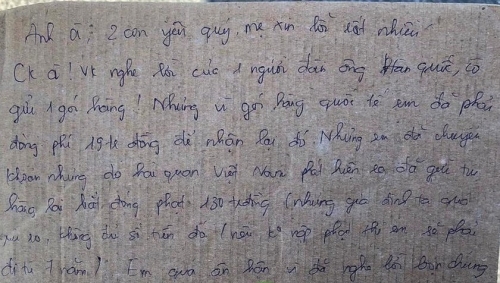 Anh à; 2 con yêu quý, mẹ xin lỗi rất nhiều
Ck à! Vk nghe lời của 1 người đàn ông Hàn Quốc, có
gửi 1 gói hàng! Nhưng vì gói hàng quốc tế em đã phải
đóng phí 19tr đồng để nhận lại đó. Nhưng em đã chuyển
khoản nhưng do hải quan Việt Nam phát hiện ra đã giữ
hàng lại bắt đóng phạt 130 triệu đồng (nhưng gia đình ta quá
không đủ số tiền đó (nếu ko nộp phạt thì em sẽ phải
đi tù 7 năm! Em quá ân hận vì đã nghe lời bọn chúng